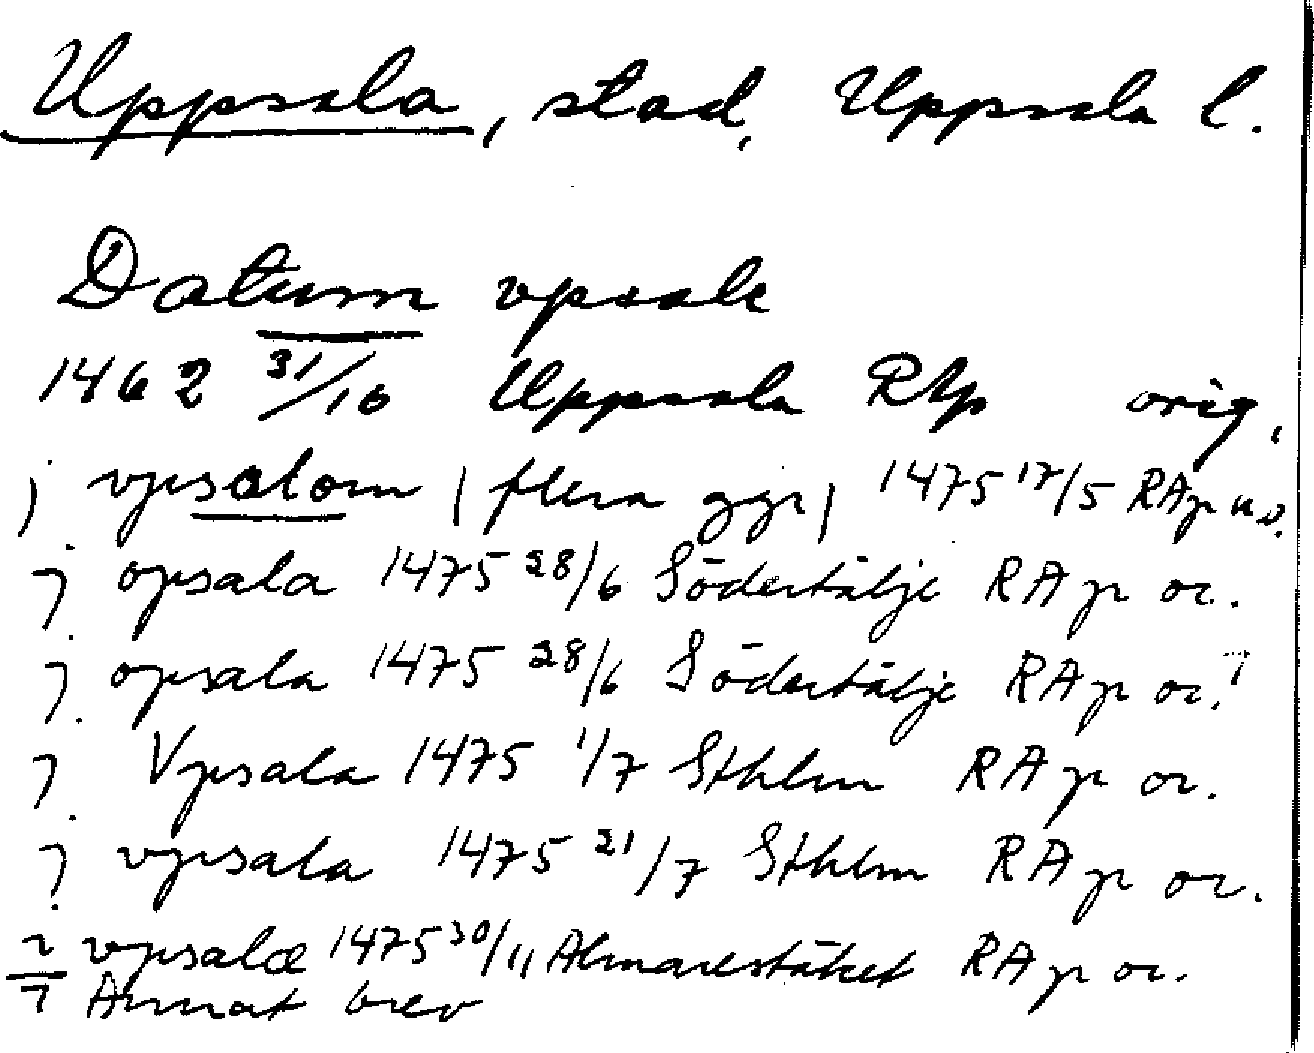 Uppsala, stad, Uppsala l.
Datum vpsale
1462 31/10 Uppsala RAp orig.
j vpsalom (flera ggr) 1475 17/5 RAp u.o.
j opsala 1475 28/6 Södertälje RAp or.
j opsala 1475 28/6 Södertälje RAp or.1
j Vpsala 1475 1/7 Sthlm RAp or.
j vpsala 1475 21/7 Sthlm RAp or.
i vpsalæ 1475 30/11 Almarestäket RAp or.
1 Annat brev